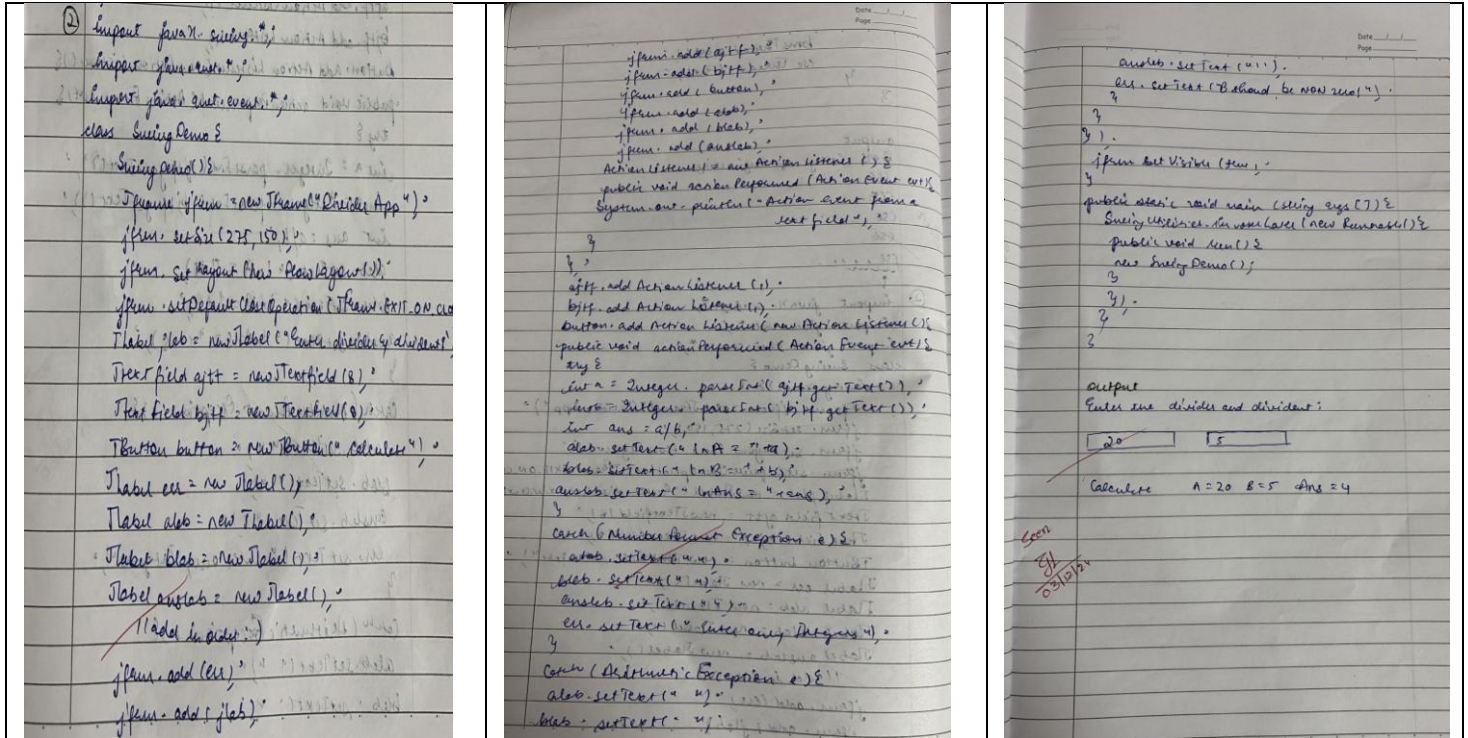 ②
import javax.swing.*;
import java.awt.*;
import java.awt.event.*;
class SwingDemo {
SwingDemo() {
JFrame jfrm = new JFrame("Divider App");
jfrm.setSize(275, 150);
jfrm.setLayout(new FlowLayout());
jfrm.setDefaultCloseOperation(JFrame.EXIT_ON_CLO
JLabel jlab = new JLabel("Enter divider & divident"
JTextField ajtf = new JTextField(8);
JTextField bjtf = new JTextField(8);
JButton button = new JButton("Calculate");
JLabel err = new JLabel();
JLabel alab = new JLabel();
JLabel blab = new JLabel();
JLabel anslab = new JLabel();
//add in order :)
jfrm.add(err);
jfrm.add(jlab);
Date
Page
jfrm.add(ajtf);
jfrm.add(bjtf);
jfrm.add(button);
jfrm.add(alab);
jfrm.add(blab);
jfrm.add(anslab);
ActionListener l = new ActionListener() {
public void actionPerformed(ActionEvent evt) {
System.out.println("Action event from a
text field");
}
};
ajtf.addActionListener(l);
bjtf.addActionListener(l);
button.addActionListener(new ActionListener() {
public void actionPerformed(ActionEvent evt) {
try {
int a = Integer.parseInt(ajtf.getText());
int b = Integer.parseInt(bjtf.getText());
int ans = a/b;
alab.setText("\nA = " + a);
blab.setText("\nB = " + b);
anslab.setText("\nAns = " + ans);
}
catch (NumberFormatException e) {
alab.setText(" ");
blab.setText(" ");
anslab.setText(" ");
err.setText("Enter only Integers");
}
catch (ArithmeticException e) {
alab.setText(" ");
blab.setText(" ");
Date
Page
anslab.setText(" ");
err.setText("B should be NON zero");
}
}
});
jfrm.setVisible(true);
}
public static void main(String args[]) {
SwingUtilities.invokeLater(new Runnable() {
public void run() {
new SwingDemo();
}
});
}
}
output
Enter the divider and divident:
20 5
Calculate A=20 B=5 Ans=4
Seen
03/12/24